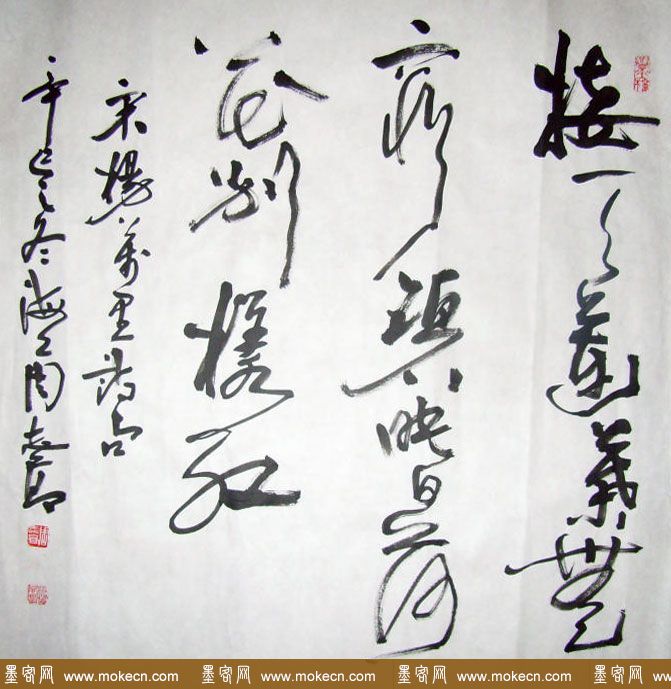 接天蓮葉無
窮碧映日荷
花別樣紅
宋楊萬里詩句
辛巳之冬海上周
墨客网 www.mokecn.com 墨客网 www.mokecn.com 墨客网 www.mokecn.com 墨客网